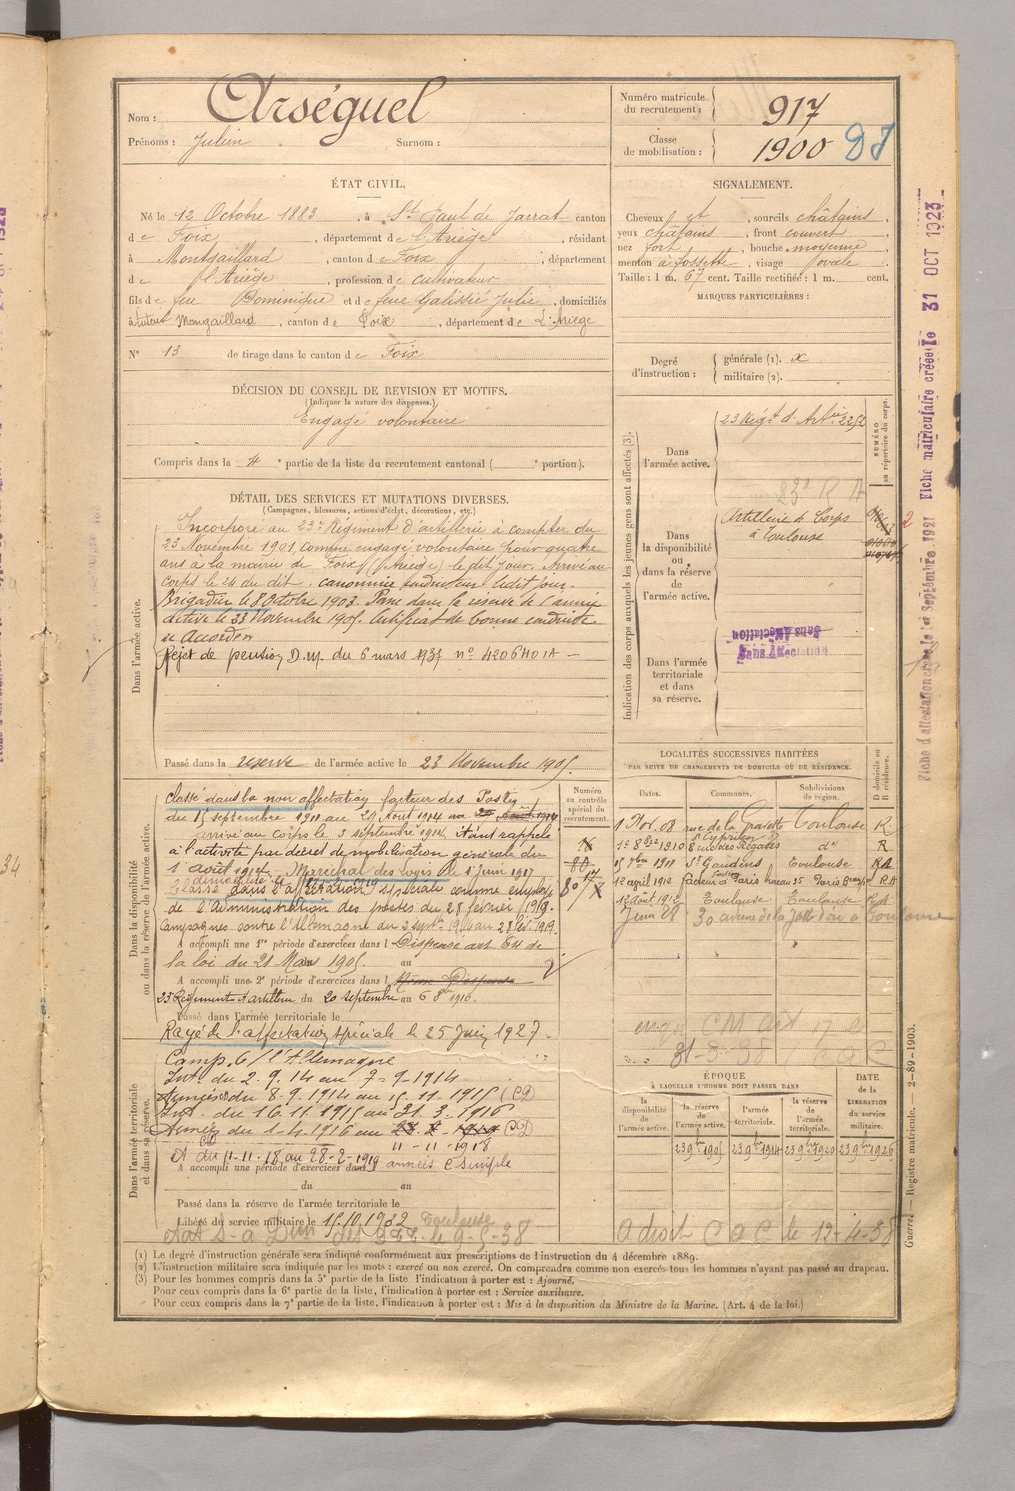 Nom : Arséguel
Prénoms : Julien Surnom :
Numéro matricule du recrutement : 917
Classe de mobilisation : 1900 DJ
ÉTAT CIVIL.
Né le 12 Octobre 1883, à St Paul de Jarrat canton
de Foix, département de l'Ariège, résidant
à Montgaillard, canton de Foix, département
de l'Ariège, profession de cultivateur
fils de feu Dominique et de feue Galissié Julie, domiciliés
à tuteur Mongaillard, canton de Foix, département de L'Ariege
N° 13 de tirage dans le canton de Foix
SIGNALEMENT.
Cheveux et, sourcils châtains,
yeux châtains, front couvert
nez fort, bouche moyenne
menton à fossette, visage ovale
Taille : 1 m. 67 cent. Taille rectifiée : 1 m. cent.
MARQUES PARTICULIÈRES :
Degré d'instruction :
générale (1). x
militaire (2).
DÉCISION DU CONSEIL DE REVISION ET MOTIFS.
(Indiquer la nature des dispenses.)
Engagé volontaire
Compris dans la 4e partie de la liste du recrutement cantonal ( e portion).
DÉTAIL DES SERVICES ET MUTATIONS DIVERSES.
(Campagnes, blessures, actions d'éclat, décorations, etc.)
Dans l'armée active.
Incorporé au 23e Régiment d'artillerie à compter du
23 Novembre 1901, comme engagé volontaire pour quatre
ans à la mairie de Foix (Ariège) le dit jour. Arrivé au
corps le 24 du dit. canonnier conducteur le dit jour.
Brigadier le 8 Octobre 1903. Passé dans la réserve de l'armée
active le 23 Novembre 1905. Certificat de bonne conduite
Accordé
Rejet de pension D.M. du 6 mars 1937 n° 4206401A
Passé dans la reserve de l'armée active le 23 Novembre 1905.
Indication des corps auxquels les jeunes gens sont affectés (3).
NUMÉRO au répertoire du corps.
Dans l'armée active.
23 Régt d'Artie 2252
23e R A
Dans la disponibilité ou dans la réserve de l'armée active.
Artillerie de Corps
à Toulouse
2
Dans l'armée territoriale et dans sa réserve.
Sans Affectation
Sans Affectation
Dans la disponibilité ou dans la réserve de l'armée active.
Numéro au contrôle spécial du recrutement.
Classé dans la non affectation facteur des Postes
du 15 septembre 1911 au 29 Août 1914
arrivé au corps le 3 septembre 1914. Etant rappelé
à l'activité par décret de mobilisation générale du
1 août 1914. Maréchal des logis le 1 juin 1917
Classé dans l'affectation spéciale comme employé
de l'Administration des postes du 28 février 1919.
Campagnes contre l'Allemagne du 3 septbre 1914 au 28 fév. 1919.
A accompli une 1re période d'exercices dans l Dispensé art 64 de
la loi du 21 Mars 1905. au
A accompli une 2e période d'exercices dans l
23 Régiment d'artillerie du 20 septembre au 6 8bre 1910.
Passé dans l'armée territoriale le
Rayé de l'affectation spéciale le 25 Juin 1927.
Dans l'armée territoriale et dans sa réserve.
Camp. C/ l'Allemagne
Int. du 2.9.14 au 7-9-1914
Armées du 8.9.1914 au 15.11.1915 (CD)
Int. du 16.11.1915 au 31.3.1916
Armées du 1.4.1916 au (CD)
11-11-1918
et du 11-11-18 au 28-2-1919 armées C Simple
A accompli une période d'exercices dans
du au
Passé dans la réserve de l'armée territoriale le
Libéré du service militaire le 15.10.1932 Toulouse
LOCALITÉS SUCCESSIVES HABITÉES
PAR SUITE DE CHANGEMENTS DE DOMICILE OU DE RÉSIDENCE.
Dates. Communes. Subdivisions de région. D domicile ou R résidence.
1 Nov. 08 rue de la Gravette Toulouse R
1er 8bre 1910 8 rue des Régans do R
15 7bre 1911 St Gaudens Toulouse RA
12 avril 1912 facteur à Paris bureau 35 Paris RA
12 Août 1912 Toulouse Toulouse RA
Juin 28 30 avenue de la Toulouse
31-3-38
ÉPOQUE
À LAQUELLE L'HOMME DOIT PASSER DANS
DATE DE LA LIBÉRATION du service militaire.
la disponibilité de l'armée active.
la réserve de l'armée active.
l'armée territoriale.
la réserve de l'armée territoriale.
23 9bre 1905 23 9bre 1914 23 9bre 1920 23 9bre 1926
a droit C a C le 12-4-38
(1) Le degré d'instruction générale sera indiqué conformément aux prescriptions de l'instruction du 4 décembre 1889.
(2) L'instruction militaire sera indiquée par les mots : exercé ou non exercé. On comprendra comme non exercés tous les hommes n'ayant pas passé au drapeau.
(3) Pour les hommes compris dans la 5e partie de la liste l'indication à porter est : Ajourné.
Pour ceux compris dans la 6e partie de la liste, l'indication à porter est : Service auxiliaire.
Pour ceux compris dans la 7e partie de la liste, l'indication à porter est : Mis à la disposition du Ministre de la Marine. (Art. 4 de la loi.)
Guerre. — Registre matricule. — 2-89-1903.
Fiche d'affectation créée le 1er Septembre 1921 Fiche matriculaire créée le 31 OCT 1923
34